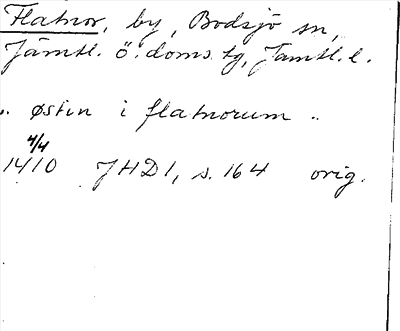 Flatnor, by, Bodsjö sn,
Jämtl. ö. doms. tg, Jämtl. l.
.. østin i flatnorum ..
4/4
1410 JHD1, s. 164 orig.